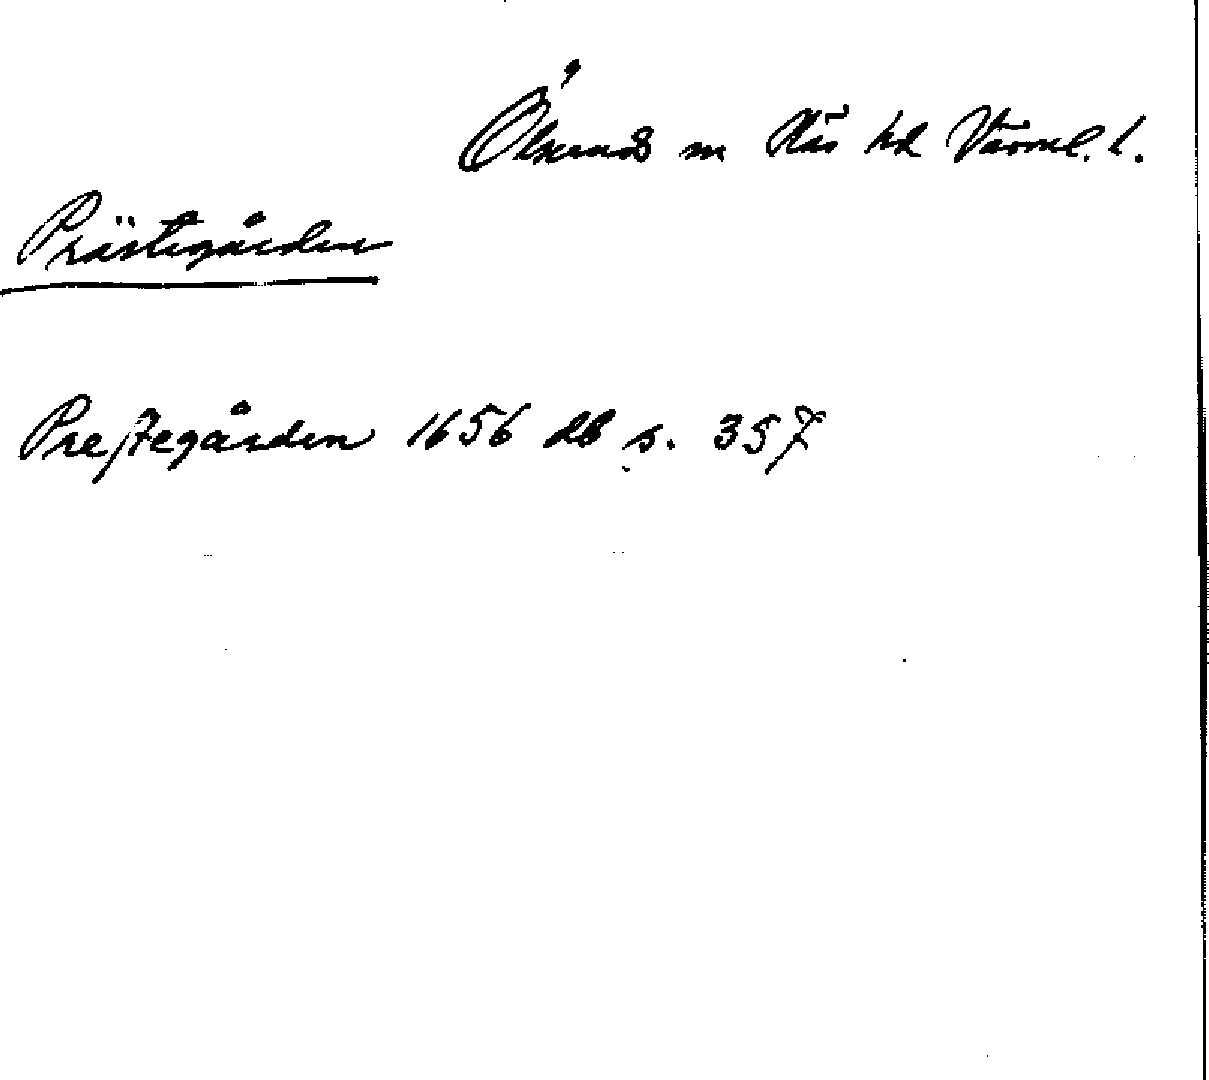 Ölserud sn Näs hd Värml. l.
Prästegården
Preſtegården 1656 db s. 357